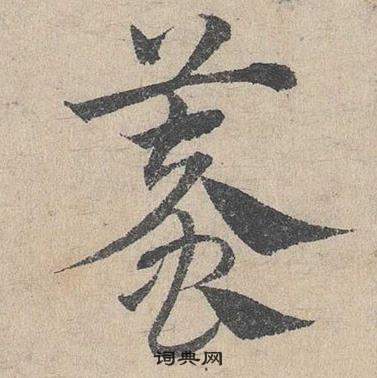 養
词典网